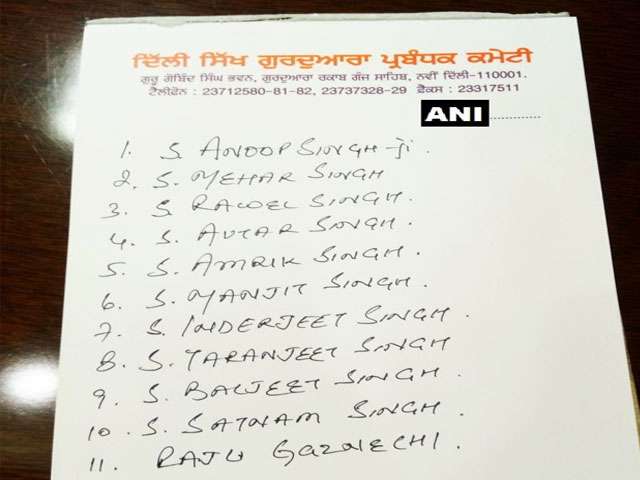 ਦਿੱਲੀ ਸਿੱਖ ਗੁਰਦੁਆਰਾ ਪ੍ਰਬੰਧਕ ਕਮੇਟੀ
ਗੁਰੂ ਗੋਬਿੰਦ ਸਿੰਘ ਭਵਨ, ਗੁਰਦੁਆਰਾ ਰਕਾਬ ਗੰਜ ਸਾਹਿਬ, ਨਵੀਂ ਦਿੱਲੀ-110001.
ਟੈਲੀਫੋਨ : 23712580-81-82, 23737328-29 ਫ਼ੈਕਸ : 23317511
ANI
1. S. ANOOP SINGH-Ji.
2. S. MEHAR SINGH
3. S. RAWEL SINGH.
4. S. AVTAR SINGH.
5. S. AMRIK SINGH.
6. S. MANJIT SINGH.
7. S. INDERJEET SINGH.
8. S. TARANJEET SINGH
9. S. BALJEET SINGH.
10. S. SATNAM SINGH.
11. RAJU GAZNECHI.